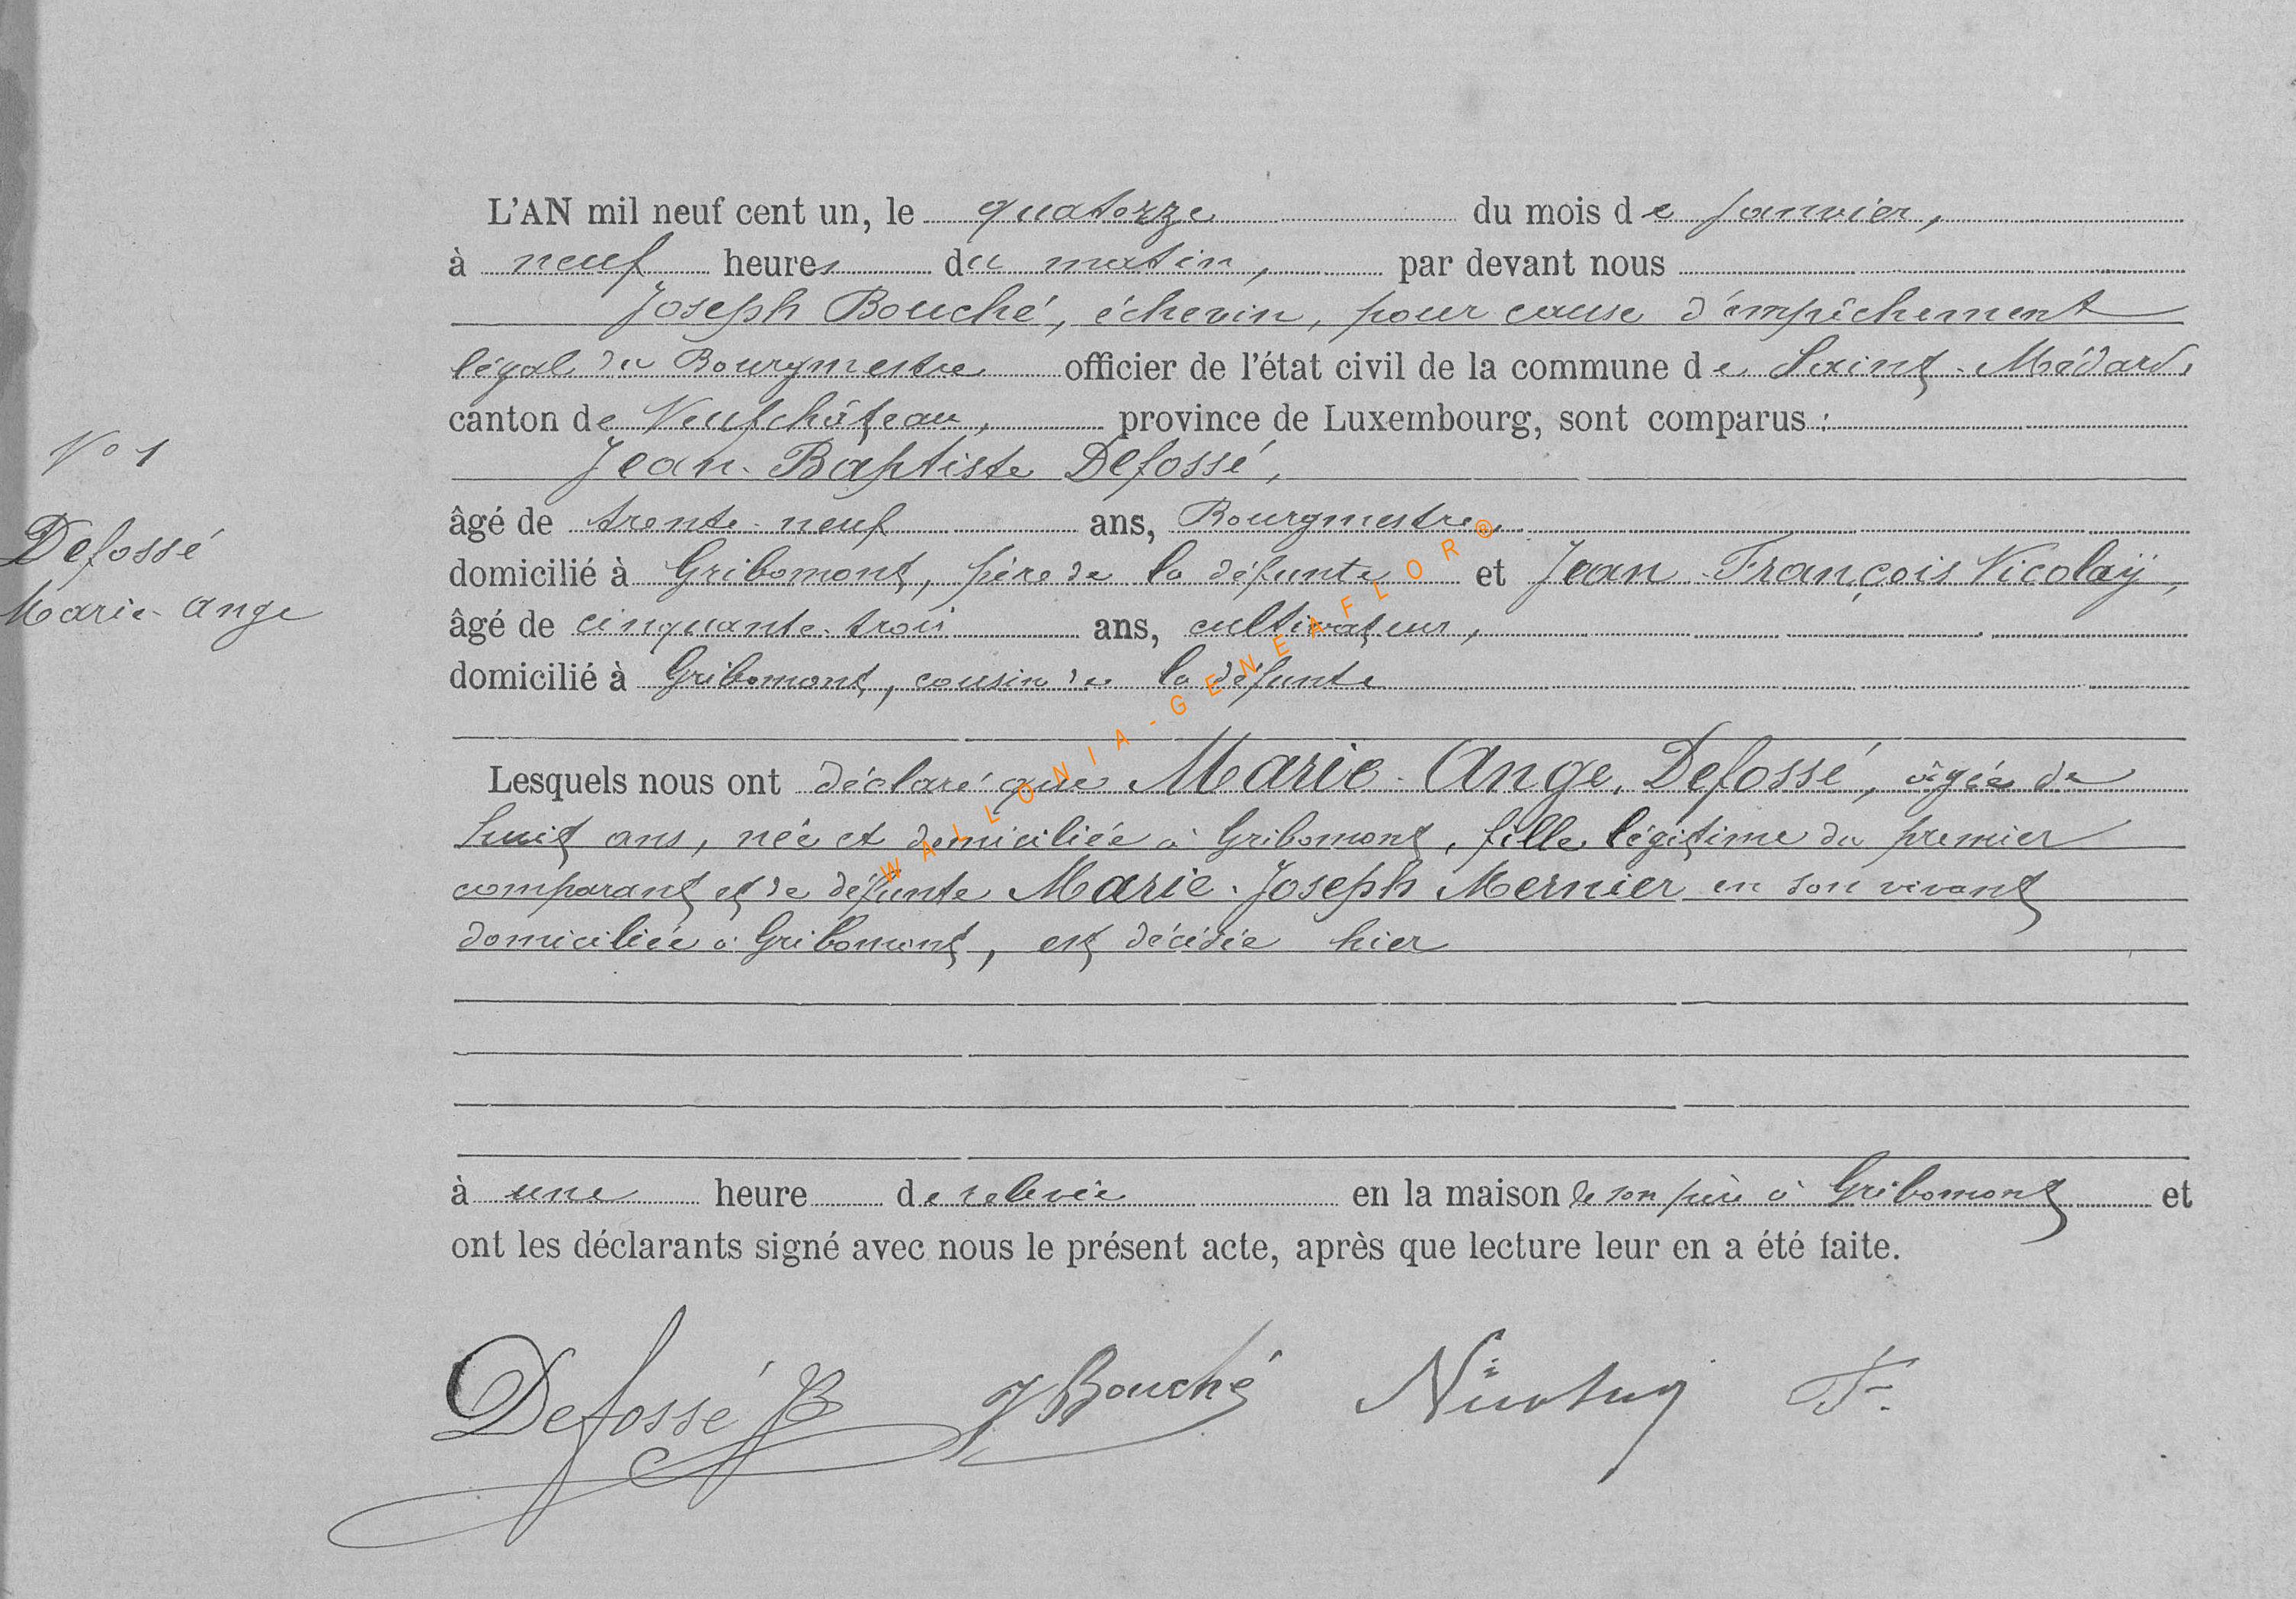 L'AN mil neuf cent un, le quatorze du mois de janvier,
à neuf heures du matin, par devant nous
Joseph Bouché, échevin, pour cause d'empêchement
légal du Bourgmestre officier de l'état civil de la commune de Saint-Médard,
canton de Neufchâteau, province de Luxembourg, sont comparus :
N° 1
Jean-Baptiste Defossé,
âgé de trente-neuf ans, Bourgmestre,
Defossé
domicilié à Gribomont, père de la défunte et Jean-François Nicolaÿ,
Marie-Ange
âgé de cinquante-trois ans, cultivateur,
domicilié à Gribomont, cousin de la défunte
WALLONIA-GENEAFLOR®
Lesquels nous ont déclaré que Marie-Ange Defossé, âgée de
huit ans, née et domiciliée à Gribomont, fille légitime du premier
comparant et de défunte Marie-Joseph Mernier en son vivant
domiciliée à Gribomont, est décédée hier
à une heure de relevée en la maison de son père à Gribomont et
ont les déclarants signé avec nous le présent acte, après que lecture leur en a été faite.
Defossé JB J Bouché Nicolay F.